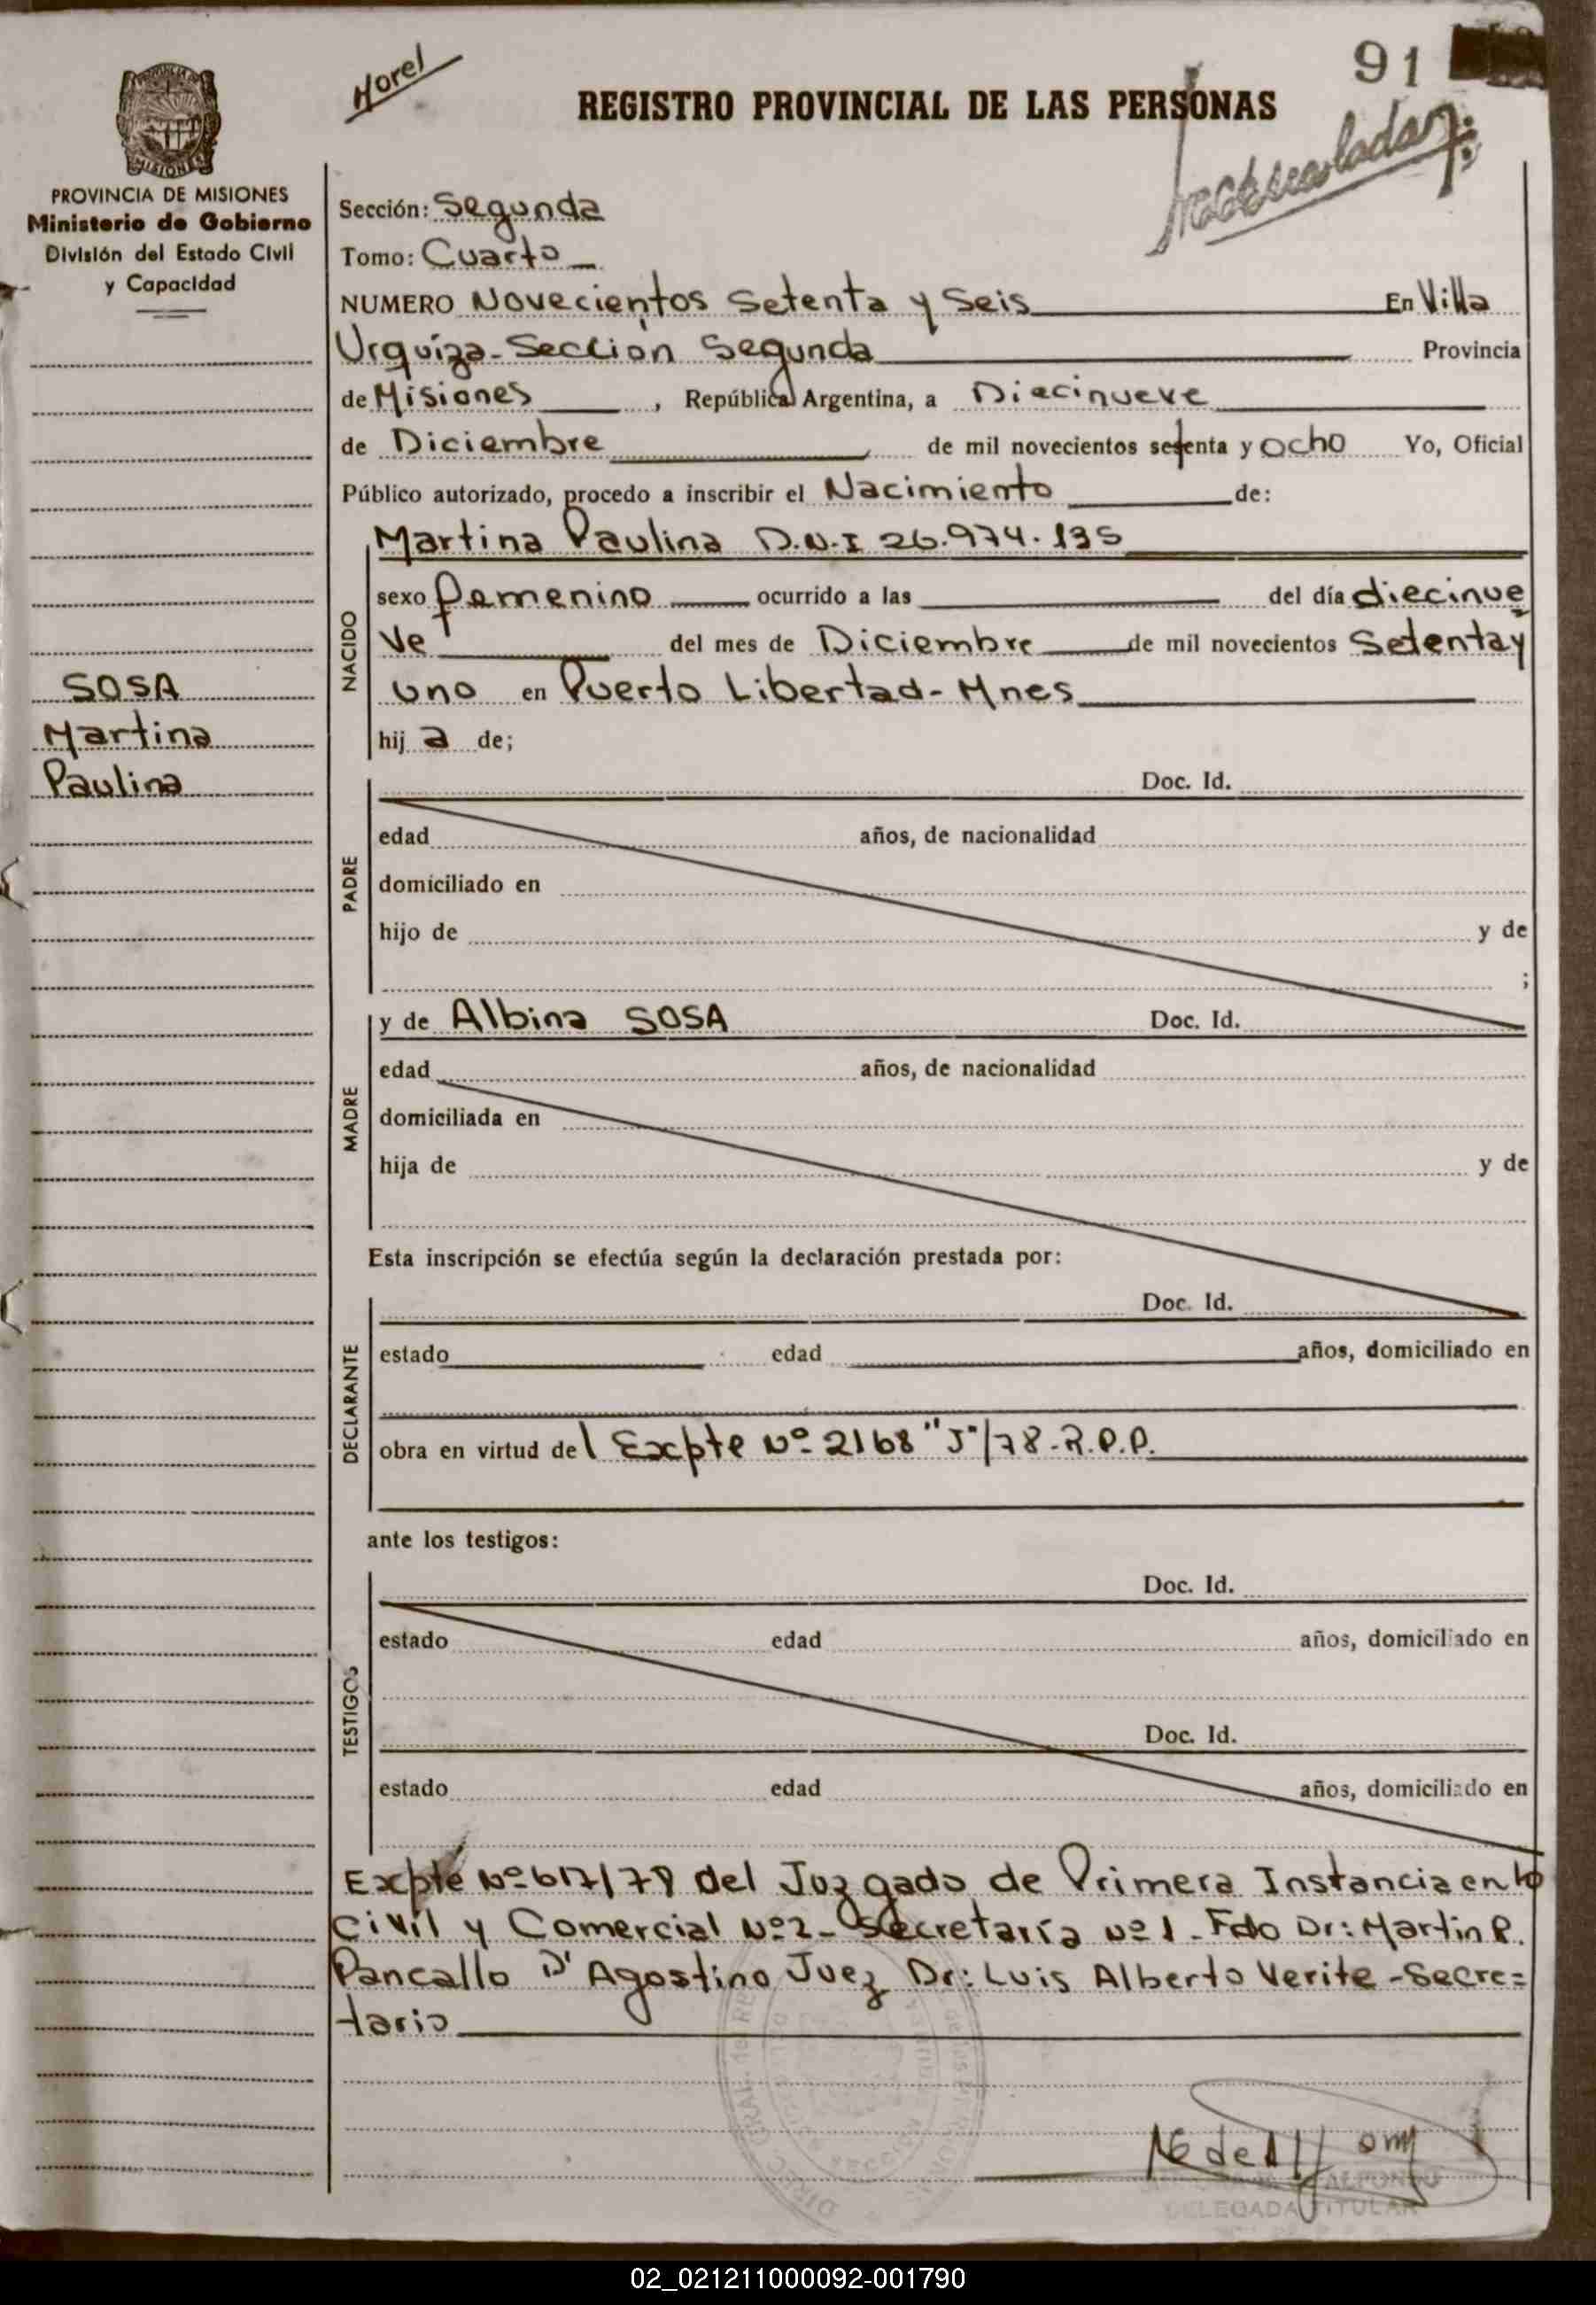 91
Morel
REGISTRO PROVINCIAL DE LAS PERSONAS
PROVINCIA DE MISIONES
Ministerio de Gobierno
División del Estado Civil
y Capacidad
SOSA
Martina
Paulina
Sección: Segunda
Tomo: Cuarto
NUMERO Novecientos Setenta y Seis En Villa
Urquiza - Seccion Segunda Provincia
de Misiones, República Argentina, a Diecinueve
de Diciembre de mil novecientos setenta y ocho Yo, Oficial
Público autorizado, procedo a inscribir el Nacimiento de:
NACIDO
Martina Paulina D.N.I 26.974.135
sexo femenino ocurrido a las del día diecinue
ve del mes de Diciembre de mil novecientos Setenta y
uno en Puerto Libertad - Mnes
hij a de;
PADRE
Doc. Id.
edad años, de nacionalidad
domiciliado en
hijo de y de
;
MADRE
y de Albina SOSA Doc. Id.
edad años, de nacionalidad
domiciliada en
hija de y de
Esta inscripción se efectúa según la declaración prestada por:
DECLARANTE
Doc. Id.
estado edad años, domiciliado en
obra en virtud del Expte Nº 2168 "J"/78 - R.P.P.
ante los testigos:
TESTIGOS
Doc. Id.
estado edad años, domiciliado en
Doc. Id.
estado edad años, domiciliado en
Expte Nº 617/78 del Juzgado de Primera Instancia en lo
Civil y Comercial Nº 2 - Secretaría Nº 1 - Fdo Dr: Martin R.
Pancallo D'Agostino Juez Dr: Luis Alberto Verite - Secre=
tario
DELEGADA TITULAR
02_021211000092-001790